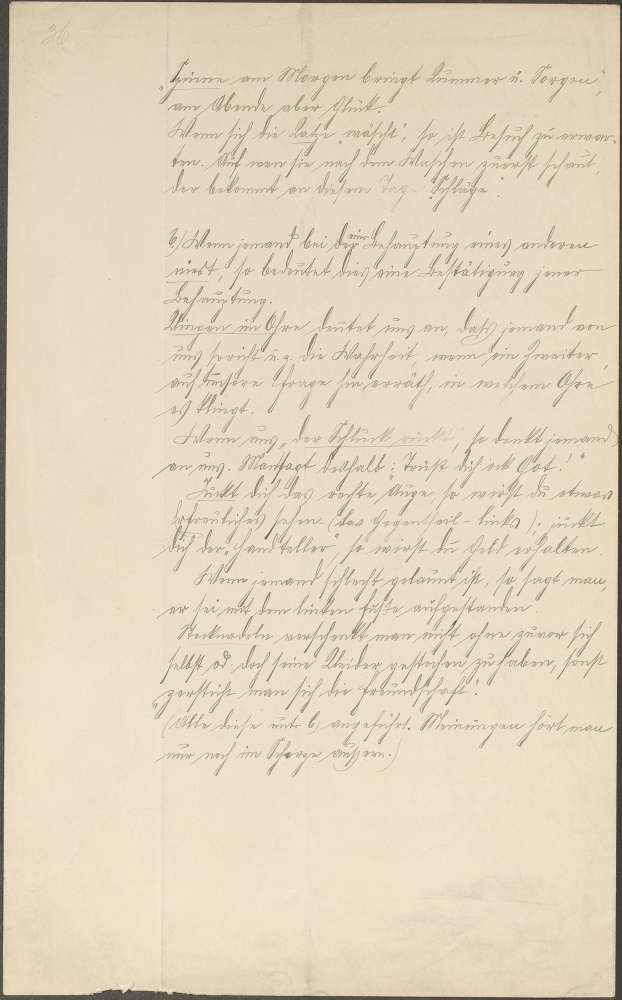 36
„Spinne am Morgen bringt Kummer u. Sorgen",
am Abende aber Glück.
Wenn sich die Katze „wäscht", so ist Besuch zu erwar-
ten. Auf wen sie nach dem Waschen zuerst schaut,
der bekommt an diesem Tag „Schläge".
b) Wenn jemand bei der Behauptung eines anderen
niest, so bedeutet dies eine Bestätigung jener
Behauptung.
Klingen im Ohre deutet uns an, dass jemand von
uns spricht u. z. die Wahrheit, wenn ein Zweiter,
auf unsere Frage hin, erräth, in welchem Ohre
es klingt.
Wenn uns „der Schluck rückt", so denkt jemand
an uns. Man sagt deshalb: „Tröst dich Got!"
Juckt dich das rechte Auge, so wirst du etwas
Erfreuliches sehen (das Gegentheil - links); juckt
dich der „Handteller", so wirst du Geld erhalten.
Wenn jemand schlecht gelaunt ist, so sagt man,
er sei mit dem linken Fuße aufgestanden.
Stecknadeln verschenkt man nicht ohne zuvor sich
selbst od. doch seine Kleider gestochen zu haben, sonst
„zersticht man sich die Freundschaft".
(Alle diese unter b) angeführt. Meinungen hört man
nur noch im Scherze äußern.)